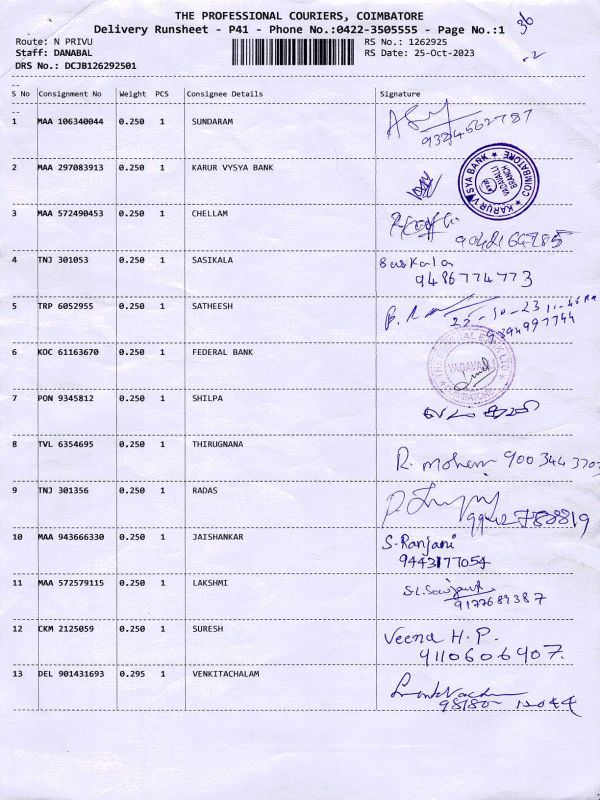 THE PROFESSIONAL COURIERS, COIMBATORE
Delivery Runsheet - P41 - Phone No.:0422-3505555 - Page No.:1
36
Route: N PRIVU RS No.: 1262925
Staff: DANABAL RS Date: 25-Oct-2023
DRS No.: DCJB126292501
S No Consignment No Weight PCS Consignee Details Signature
1 MAA 106340044 0.250 1 SUNDARAM
2 MAA 297083913 0.250 1 KARUR VYSYA BANK
KARUR VYSYA BANK ★ COIMBATORE ★
VADAVALLI
BRANCH
3 MAA 572490453 0.250 1 CHELLAM
4 TNJ 301053 0.250 1 SASIKALA Sasikala
9486774773
5 TRP 6052955 0.250 1 SATHEESH
9894997744
6 KOC 61163670 0.250 1 FEDERAL BANK
7 PON 9345812 0.250 1 SHILPA
8 TVL 6354695 0.250 1 THIRUGNANA R. Mohan 900344370
9 TNJ 301356 0.250 1 RADAS
10 MAA 943666330 0.250 1 JAISHANKAR S.Ranjani
9443177054
11 MAA 572579115 0.250 1 LAKSHMI
9177689387
12 CKM 2125059 0.250 1 SURESH Veena H.P.
9110606907.
13 DEL 901431693 0.295 1 VENKITACHALAM
98180- 12044